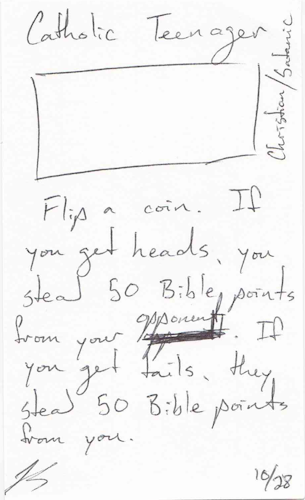 Catholic Teenager
Christian/Satanic
Flip a coin. If
you get heads, you
steal 50 Bible points
from your opponent. If
you get tails, they
steal 50 Bible points
from you.
10/28